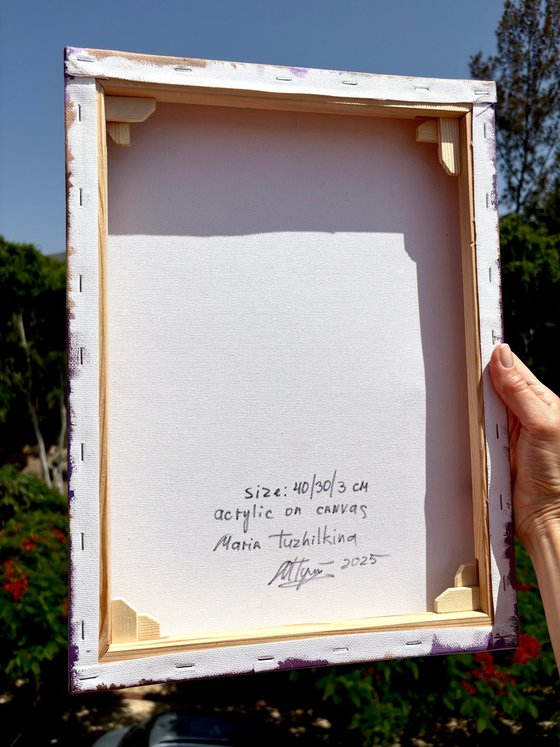 size: 40/30/3 см
acrylic on canvas
Maria Tuzhilkina
2025